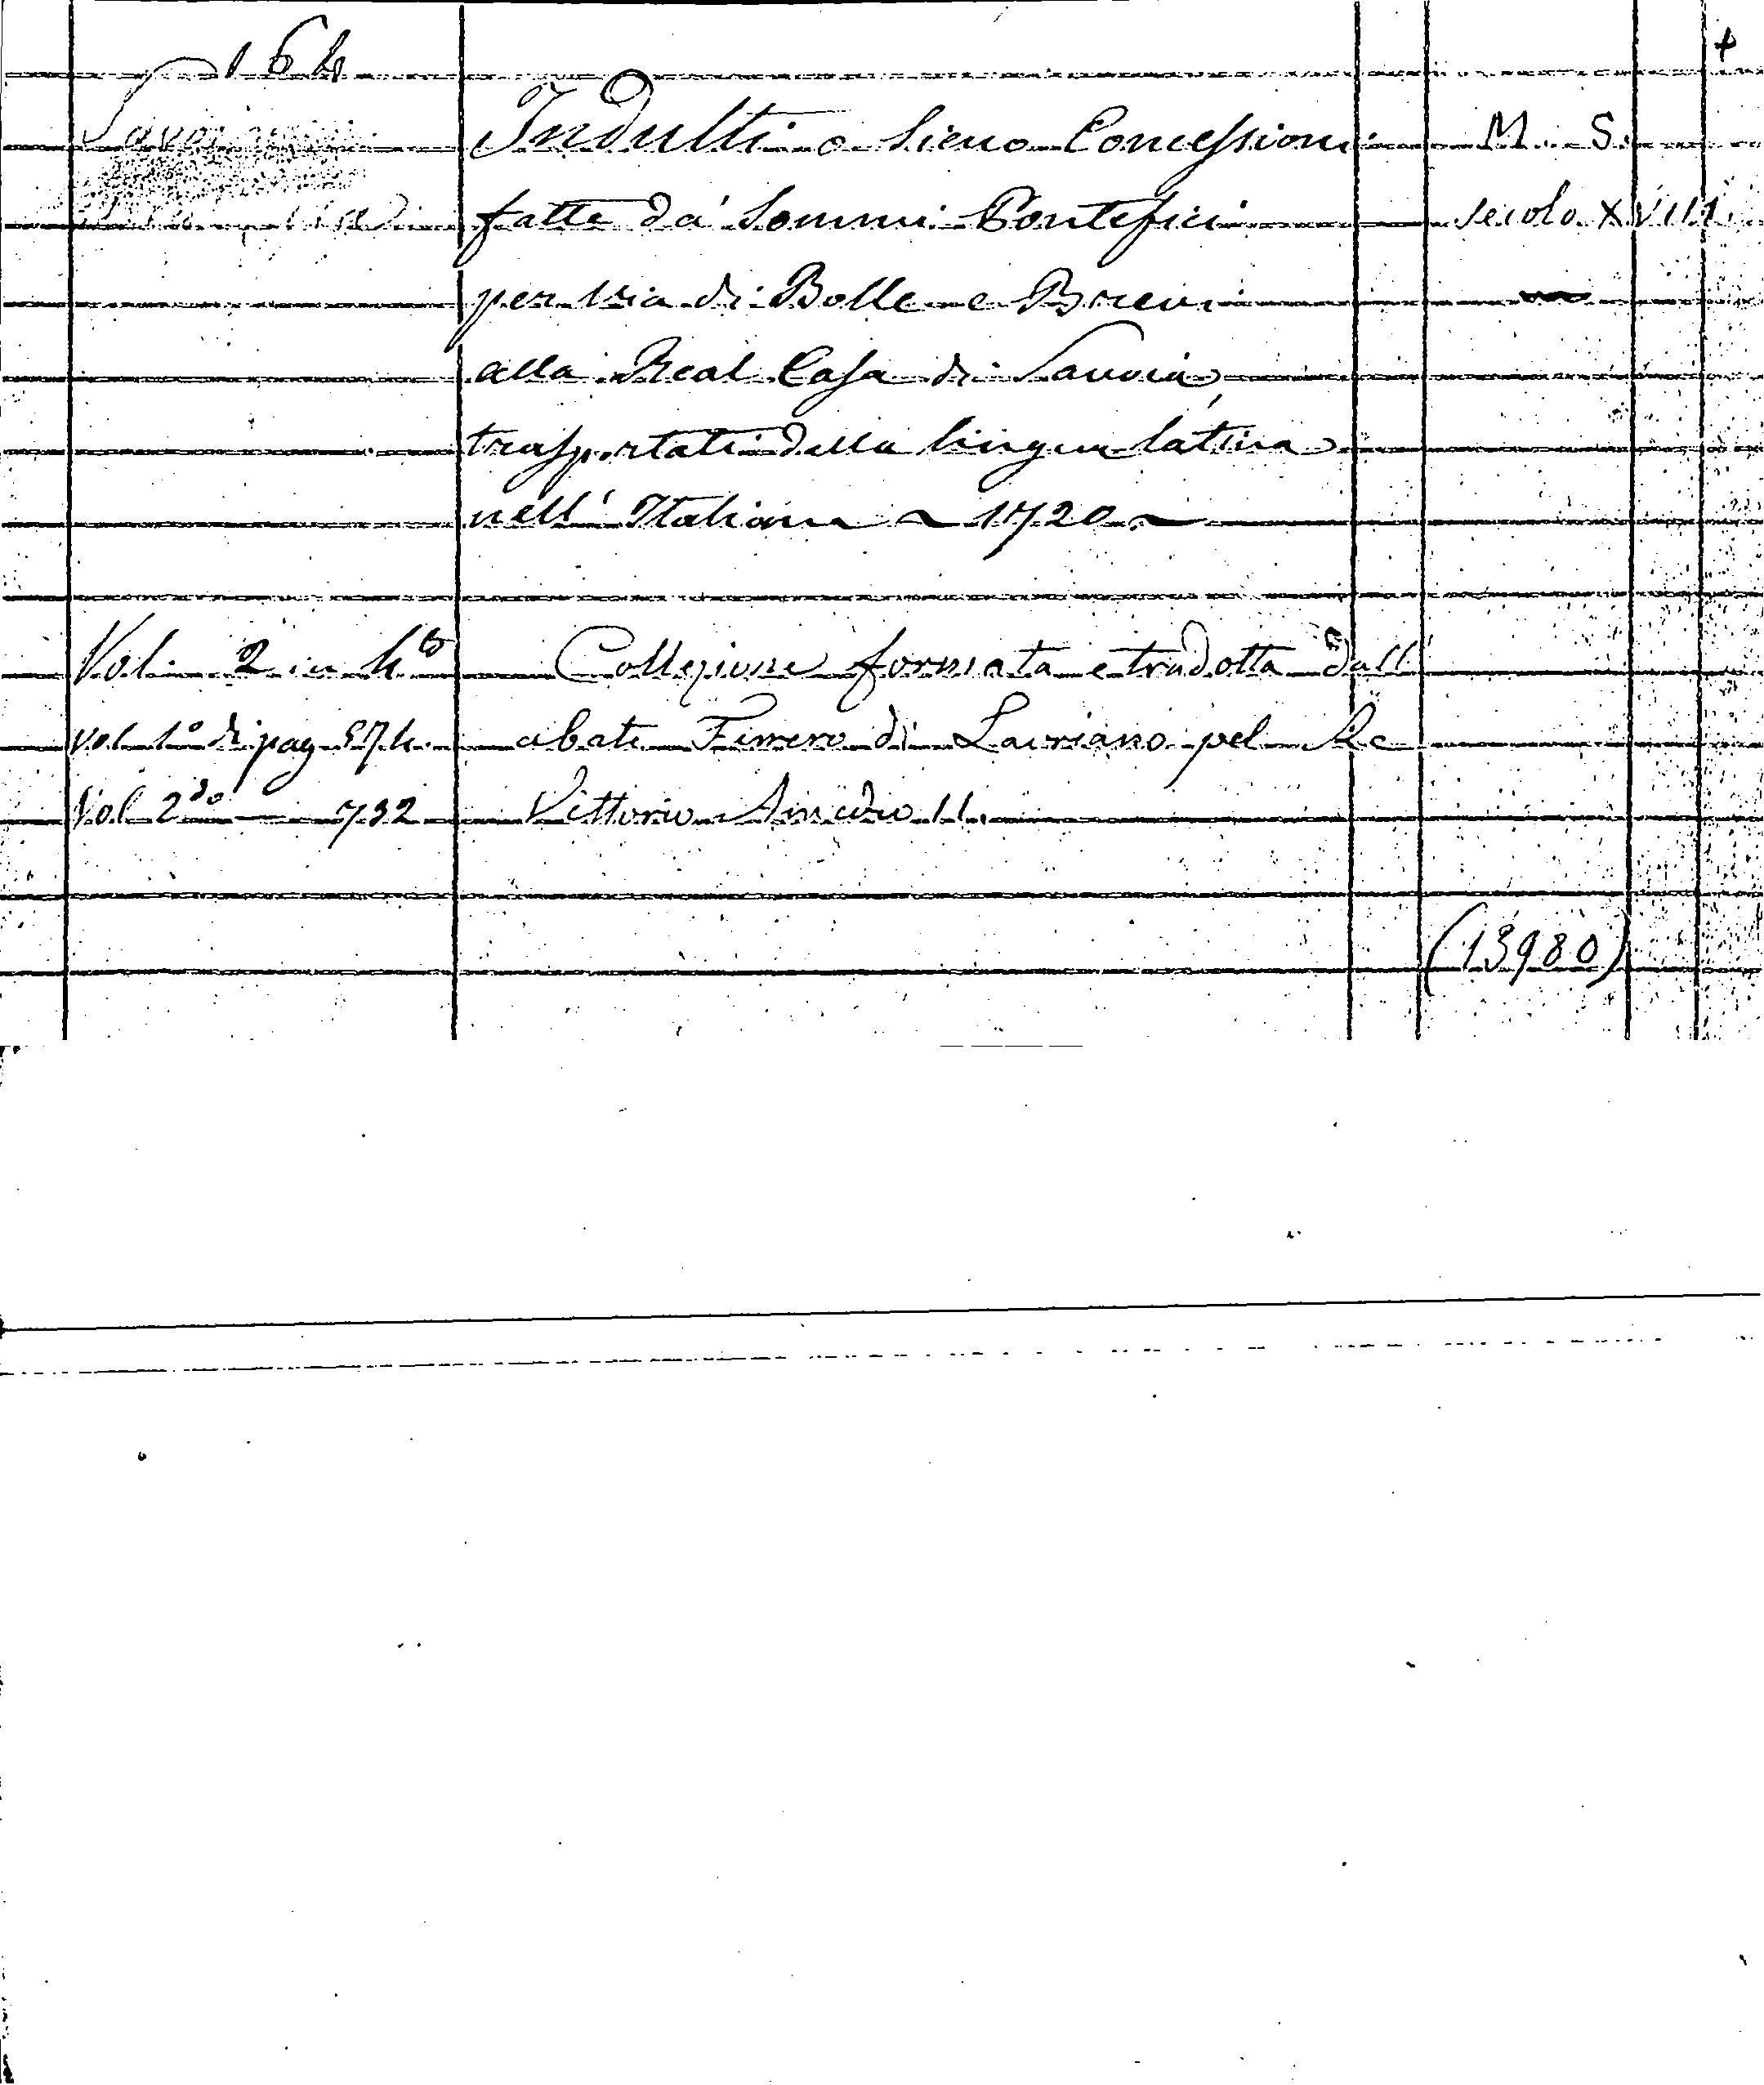 164
Indulti o sieno Concessioni M. S.
fatte da' Sommi Pontefici secolo XVIII.
per via di Bolle e Brevi
alla Real Casa di Savoia,
trasportati dalla lingua latina
nell' Italiana ~ 1720 ~
Vol. 2 in 4º Collezione formata e tradotta dall'
Vol 1º di pag 574. abate Ferrero di Lauriano pel Re
Vol 2do — 732 Vittorio Amedeo II.
(13980)